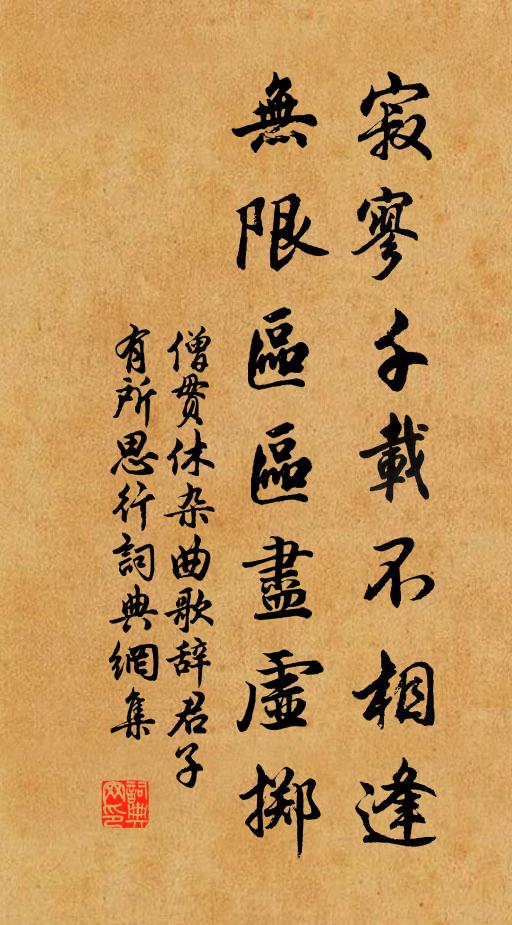 寂寥千載不相逢
無限區區盡虛擲
僧貫休杂曲歌辞君子
有所思行詞典網集
詞典網印